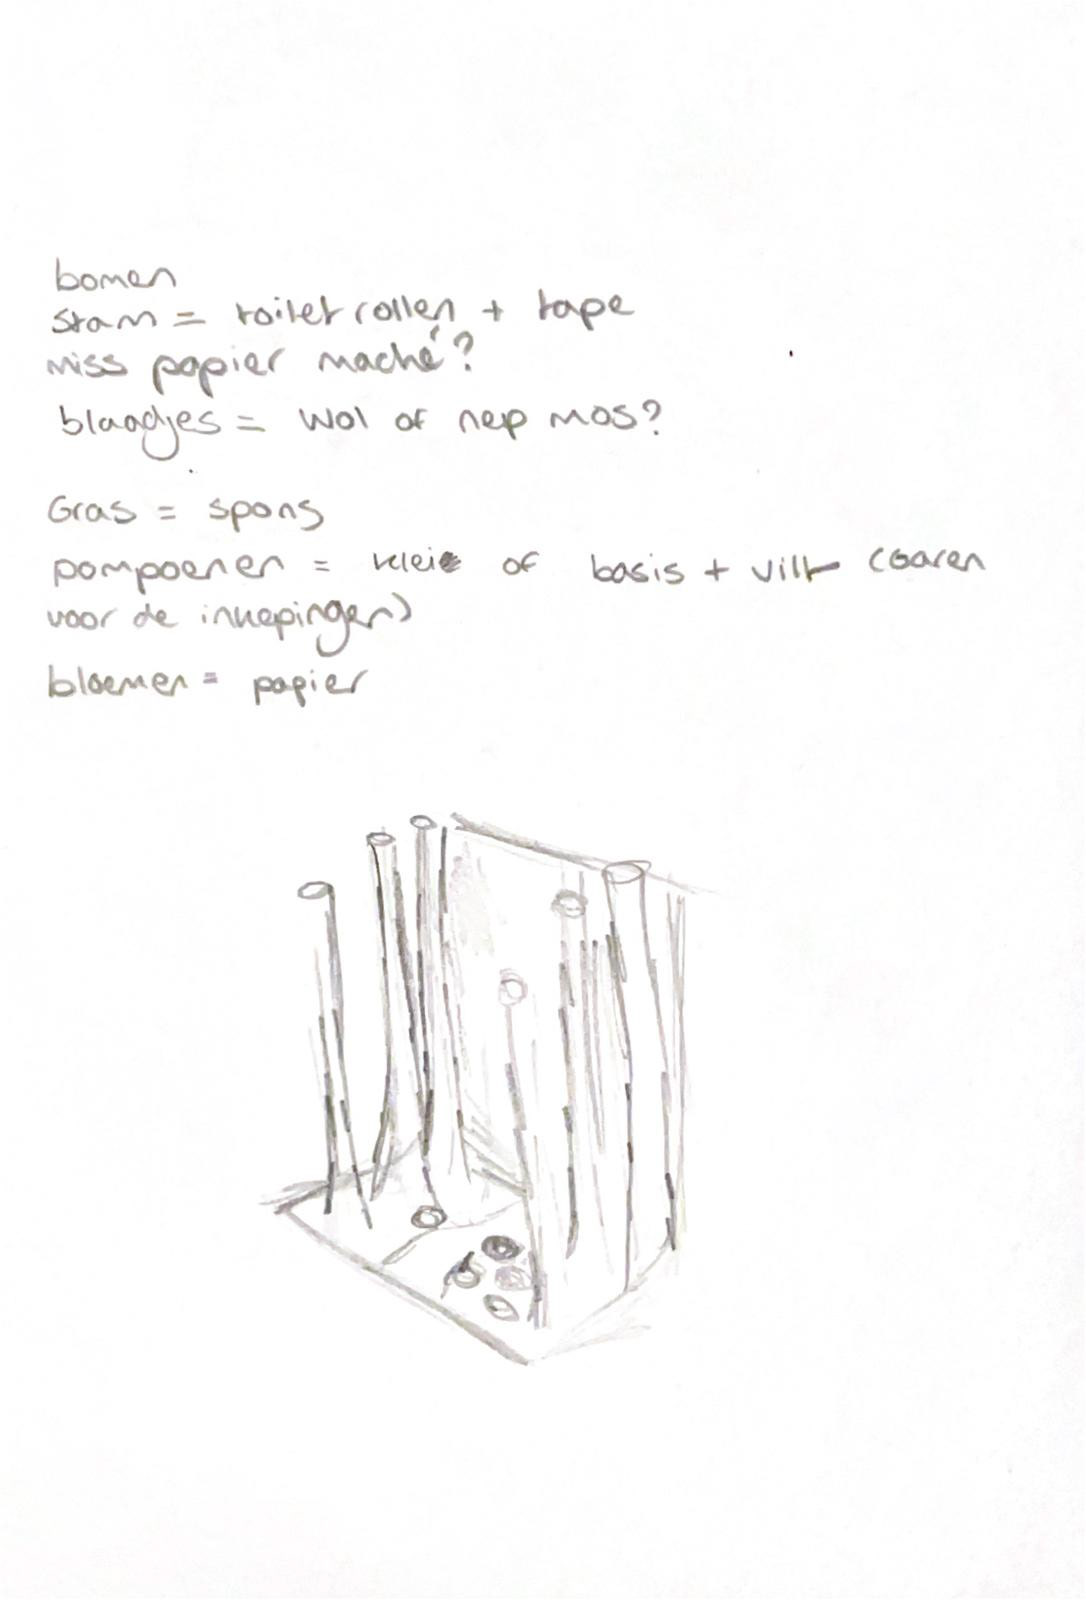 bomen
stam = toilet rollen + tape
miss papier maché?
blaadjes = wol of nep mos?
Gras = spons
pompoenen = klei of basis + vilt (garen
voor de inkepingen)
bloemen = papier